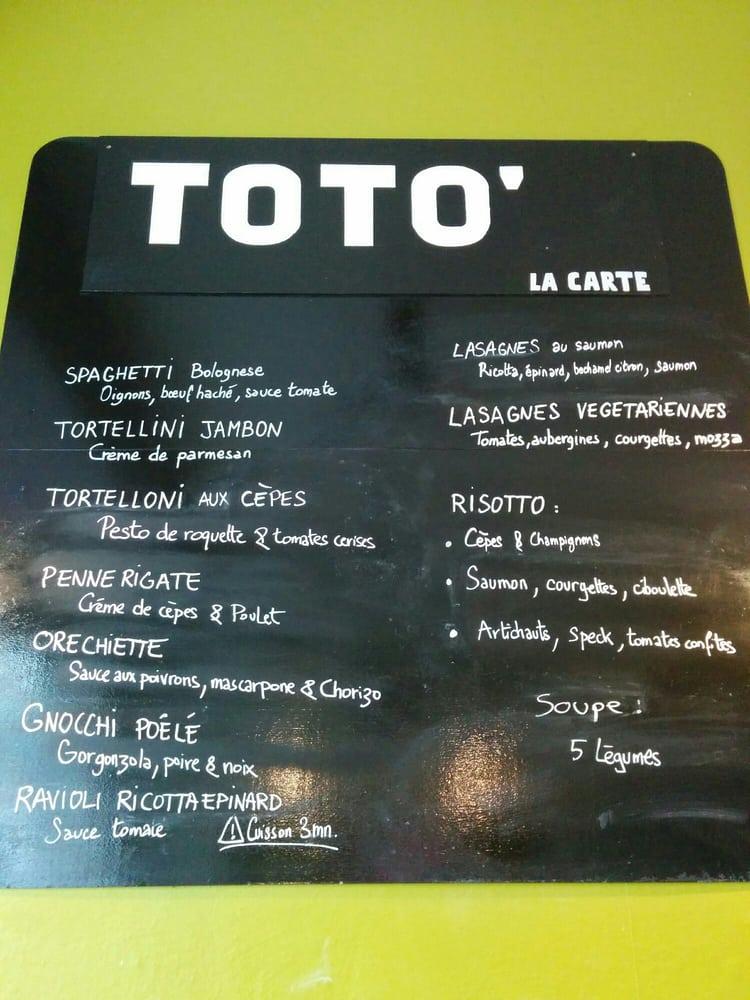 TOTO'
LA CARTE
SPAGHETTI Bolognese
Oignons, bœuf haché, sauce tomate
TORTELLINI JAMBON
Crème de parmesan
TORTELLONI AUX CÈPES
Pesto de roquette & tomates cerises
PENNE RIGATE
Crème de cèpes & Poulet
ORECHIETTE
Sauce aux poivrons, mascarpone & Chorizo
GNOCCHI POÉLÉ
Gorgonzola, poire & noix
RAVIOLI RICOTTA EPINARD
Sauce tomate ⚠ Cuisson 3mn.
LASAGNES au saumon
Ricotta, épinard, bechamel citron, saumon
LASAGNES VEGETARIENNES
Tomates, aubergines, courgettes, mozza
RISOTTO :
• Cèpes & Champignons
• Saumon, courgettes, ciboulette
• Artichauts, Speck, tomates confites
Soupe :
5 Légumes